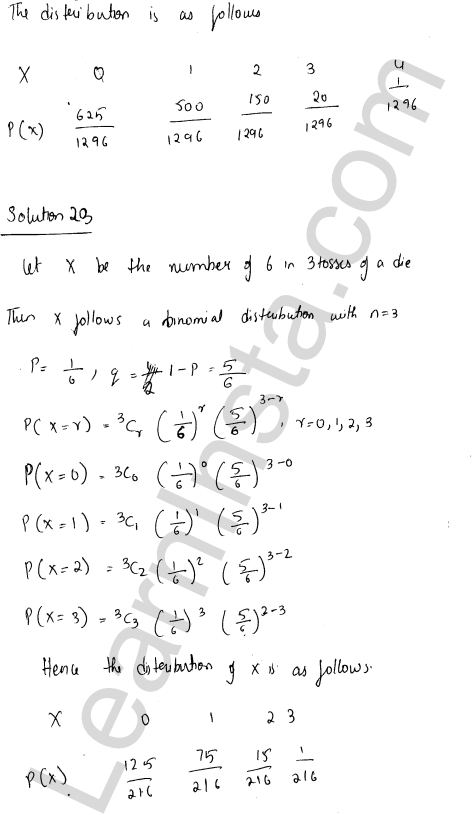 The distribution is as follows
X 0 1 2 3 4
P(x) 625/1296 500/1296 150/1296 20/1296 1/1296
Solution 20,
Let X be the number of 6 in 3 tosses of a die
Then X follows a binomial distribution with n=3
P= 1/6, q = 1-P = 5/6
P(x=r) = ³Cr (1/6)^r (5/6)^3-r, r=0,1,2,3
P(x=0) = 3C0 (1/6)^0 (5/6)^3-0
P(x=1) = ³C1 (1/6)^1 (5/6)^3-1
P(x=2) = ³C2 (1/6)^2 (5/6)^3-2
P(x=3) = ³C3 (1/6)^3 (5/6)^2-3
Hence the distribution of X is as follows.
X 0 1 2 3
P(x) 125/216 75/216 15/216 1/216
LearnInsta.com